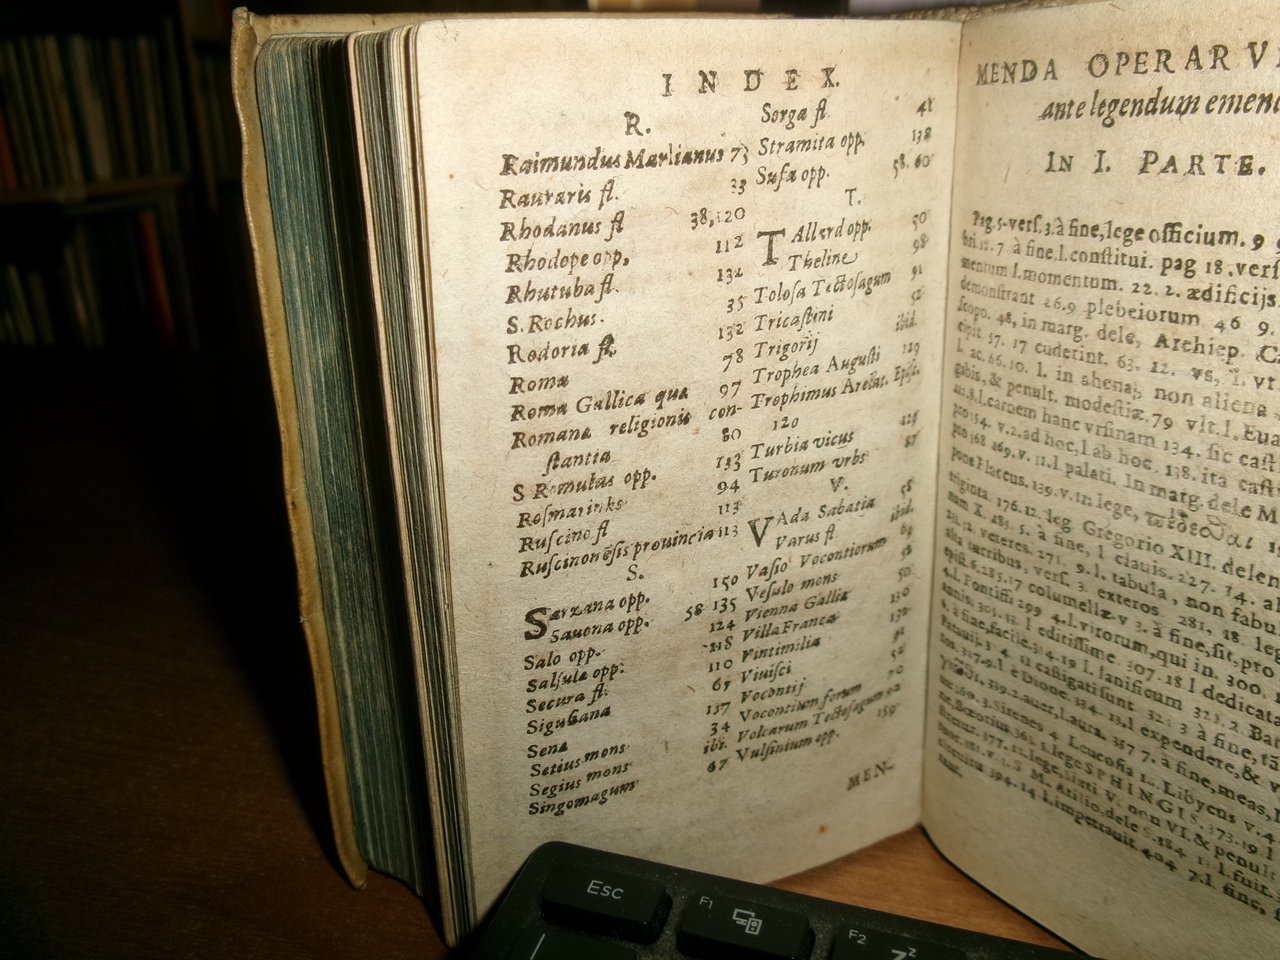 INDEX.
R.
Raimundus Marlianus 73
Rauraris fl. 33
Rhodanus fl 38,120
Rhodope opp, 112
Rhutuba fl. 132
S. Rochus. 35
Rodoria fl. 132
Roma 78
Roma Gallica qua 97
Romana religionis con-
stantia 80
S Romulus opp. 133
Rosmarinks 94
Ruscino fl 113
Ruscinonesis prouincia 113
S.
Sarzana opp. 150
Sauona opp. 58 135
Salo opp. 124
Salsula opp. 118
Secura fl. 110
Sigustana 67
Sena 137
Setius mons 34
Segius mons ibi.
Singomagum 67
Sorga fl. 41
Stramita opp. 138
Susa opp. 58. 60
T.
TAllard opp. 50
Theline 98
Tolosa Tectosagum 91
Tricastini 52
Trigorij ibid.
Trophea Augusti 129
Trophimus Arelat. Episc.
120
Turbia vicus 129
Turonum vrbs 87
V.
VAda Sabatia 58
Varus fl. ibid.
Vasio Vocontiorum 69
Vesulo mons 58
Vienna Gallia 50
Villa Franca 130
Vintimilia 132
Viuisci 91
Vocontij 52
Vocontium forum 70
Volcarum Tectosagum 92
Vulsinium opp. 159
MEN-
MENDA OPERARV
ante legendum emen
IN I. PARTE.
Pag. 5. vers. 3. à fine, lege officium. 9
7 à fine, l. constitui. pag 18. vers
mentum l. momentum. 22. 2. ædificijs
demonstrant 26.9 plebeiorum 46 9.
scopo. 48, in marg. dele, Archiep. Ca
cipit 57. 17 cuderint. 63. 12. vs, l. vt
l. ac. 66. 10. l. in ahena, non aliena
gabis, & penult. modestiæ. 79 vlt. l. Eua
l. carnem hanc vrsinam 134. sic cast
pro 54. v. 2. ad hoc, l. ab hoc. 138. ita cast
pro 168 169. v. 11. l. palati. In marg. dele M
pone Flaccus. 139. v. in lege,
triginta. 176. 12. leg Gregorio XIII. delen
num X. 185. 5. à fine, l clauis. 227. 14. al
veteres. 271. 9. l. tabula, non fabul
alta turribus, vers. 3. exteros 281. 18. leg
epist. 6. 285. 17 columellæ v 3. à fine, sit, pro
4. l. Pontifi 299 4. l. virorum, qui in. 300.
annis. 305. 13. l editissime. 307. 18 l dedicat
6. à fine, facile. 314. 19 l. lanificum 323. 2. Bat
castigati sunt 325 3 à fine,
327. 9. l e Dione. 334. 13. l expendere, &
339. 2. auer, Laura. 357 7. à fine, meas,
3. Sirenes 4 Leucosia 12. Libycus v. 4
Bœotius 363. 5. lege SPHINGIS. 373. 19. l
377. 12. lege, Sixti V. non VI. & penult
S M. Atilio, dele S. 384 l. fuit.
394. 14 l. impertauit 404 7. l. fine,
Esc
F1
F2